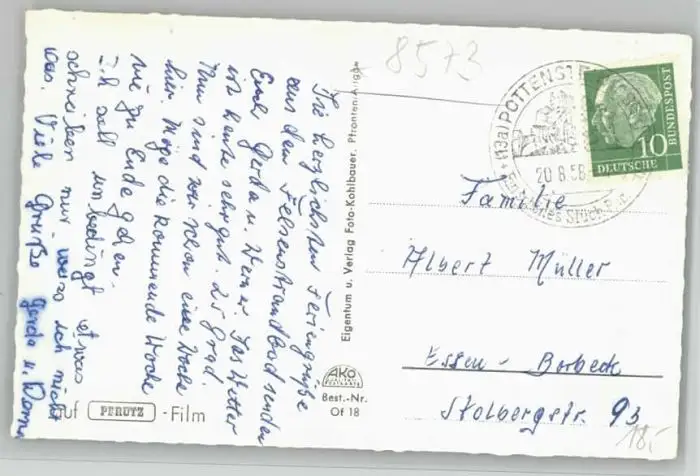 Die herzlichsten Feriengrüße
aus dem Felsenstrandbad senden
Euch Gerda u. Werner. Das Wetter
ist heute sehr gut. 25 Grad.
Nun sind wir schon eine Woche
hier. Möge die kommende Woche
nie zu Ende gehen.
Ich soll unbedingt etwas
schreiben nur weiss ich nicht
was. Viele Grüße Gerda u.
Auf PERUTZ -Film
Eigentum u. Verlag Foto-Kohlbauer, Pfronten/Allgäu
AKO
Best.-Nr.
Of 18
8573
(13a) POTTENSTEIN
20.8.58
10
DEUTSCHE
BUNDESPOST
Familie
Albert Müller
Essen - Borbeck
Stolbergstr. 93
18,-